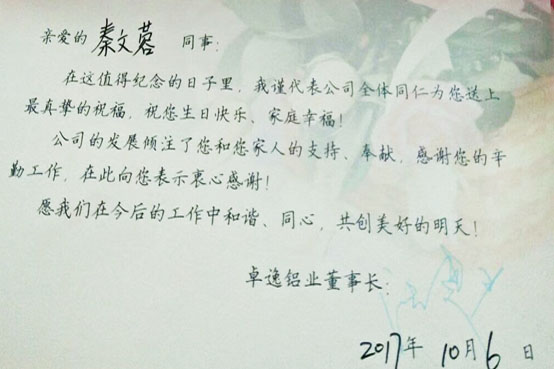 亲爱的 秦文蓉 同事:
在这值得纪念的日子里,我谨代表公司全体同仁为您送上
最真挚的祝福,祝您生日快乐、家庭幸福!
公司的发展倾注了您和您家人的支持、奉献,感谢您的辛
勤工作,在此向您表示衷心感谢!
愿我们在今后的工作中和谐、同心,共创美好的明天!
卓逸铝业董事长:
2017年 10月6日